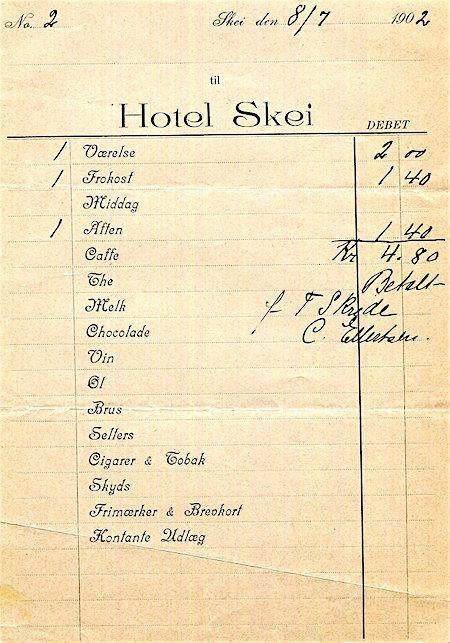 No. 2 Skei den 8/7 1902
til
Hotel Skei
DEBET
1 Værelse 2 00
1 Frokost 1 40
Middag
1 Aften 1 40
Caffe Kr 4.80
The Betalt
Melk f T Skrede
Chocolade C.
Vin
Øl
Brus
Selters
Cigarer & Tobak
Skyds
Frimærker & Brevkort
Kontante Udlæg